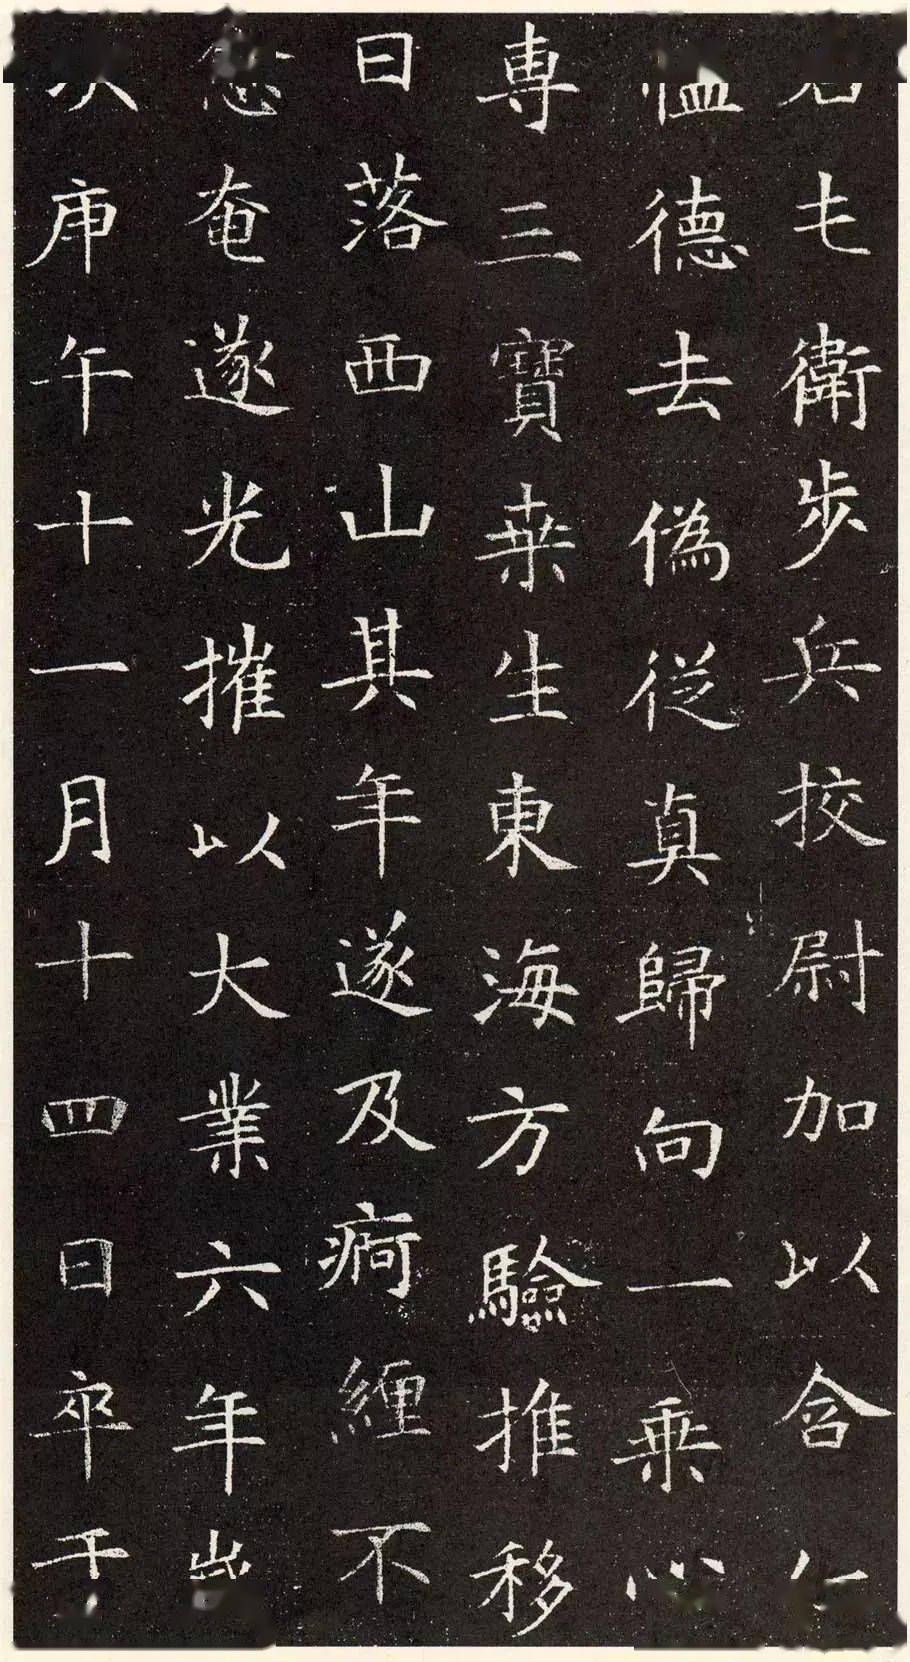 屯衛步兵挍尉加以含
德去偽従真歸向一乗心
専三寶桒生東海方驗推移
日落西山其年遂及痾纏不
奄遂光摧以大業六年歲
次庚午十一月十四日卒于